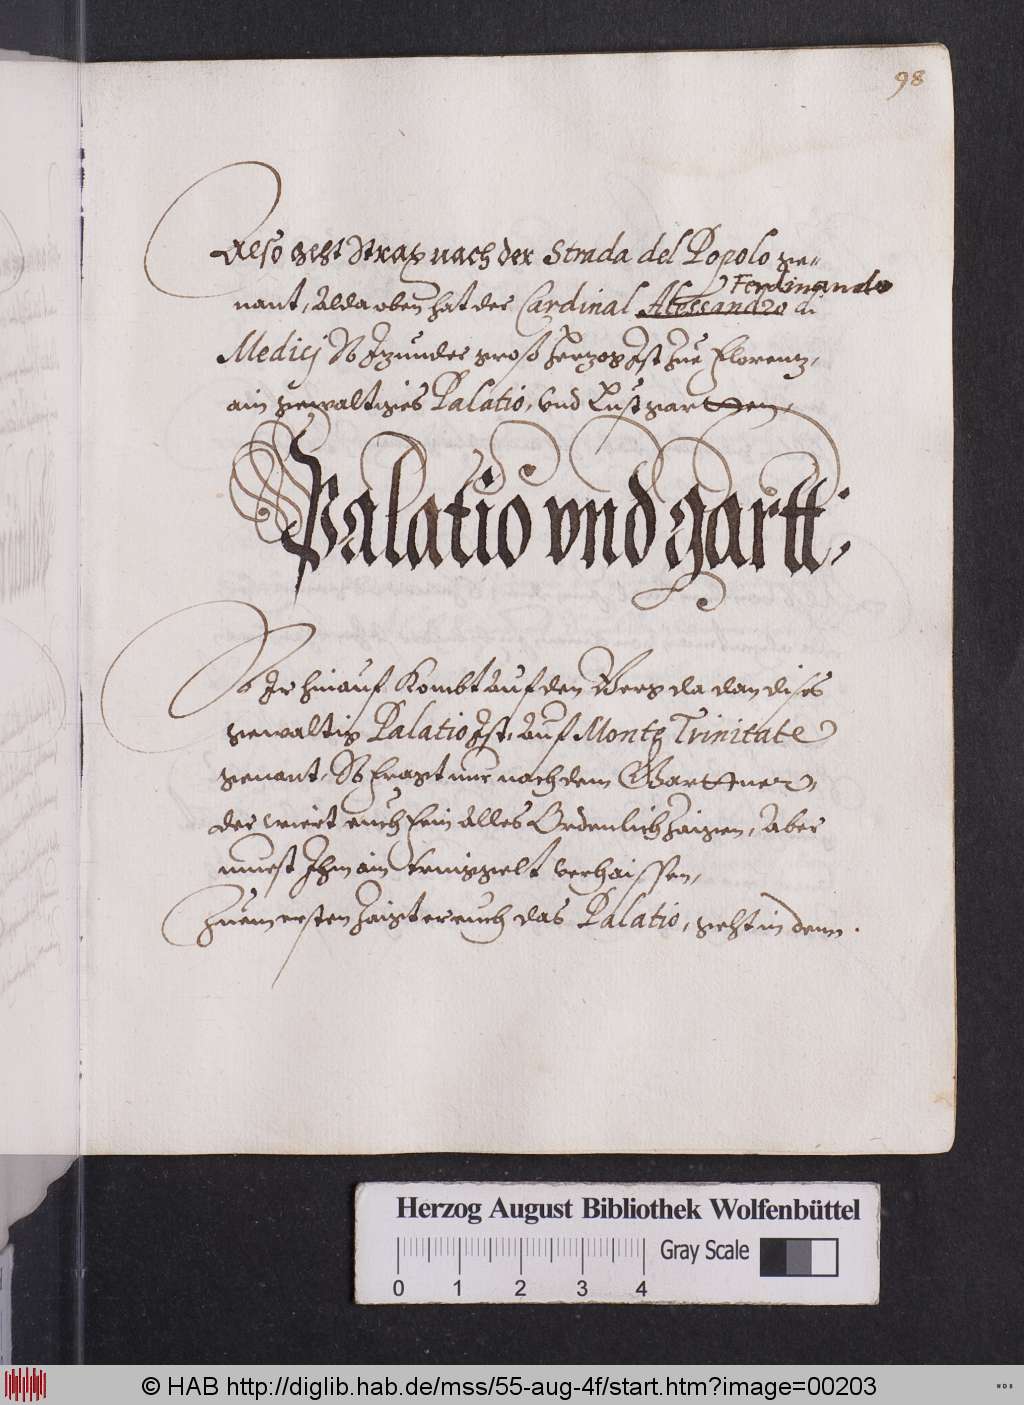 98
Also geht strax nach der Strada del Popolo ge-
nant, Alda oben hat der Cardinal Alessandro di
Ferdinando
Medicj So Jzunder groß Herzog Jst zue Florentz,
ain gewaltiges Palatio, vnd Lustgartten,
Palatio vnd gartt.
So Jr hinauf Kombt auf den Berg da dan dises
gewaltig Palatio Jst, auf Monte Trinitate
genant, So fragt nur nach dem Garttner,
der wiert euch fein alles Ordenlich zaigen, Aber
muest Jhm ain tringgelt verhaissen,
Zuem ersten zaigt er euch das Palatio, geht in denn.
Herzog August Bibliothek Wolfenbüttel
Gray Scale
0 1 2 3 4
© HAB http://diglib.hab.de/mss/55-aug-4f/start.htm?image=00203